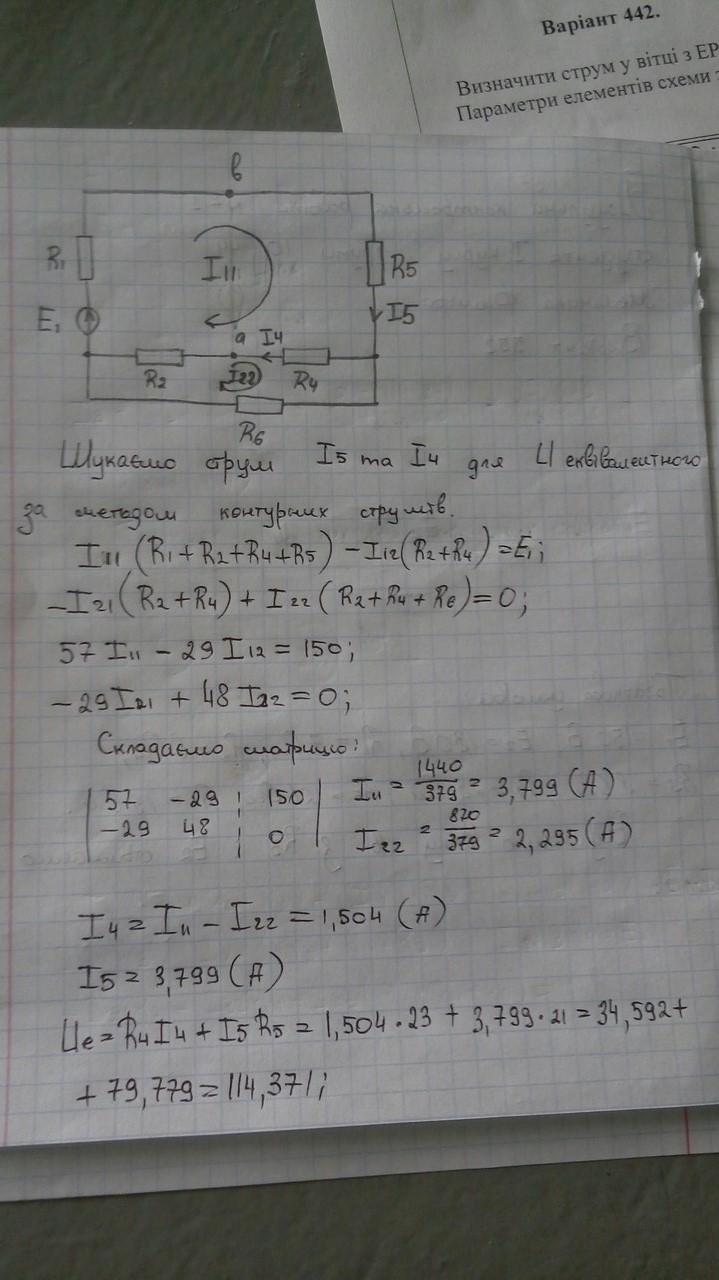 Варіант 442.
Визначити струм у вітці з ЕР
Параметри елементів схеми з
в
R1
I11
R5
E1
I5
a I4
R2
I22
R4
R6
Шукаємо струм I5 та I4 для U еквівалентного
за методом контурних струмів.
I11 (R1+R2+R4+R5) - I12(R2+R4) = E1;
-I21(R2+R4) + I22 (R2+R4+R6) = 0;
57 I11 - 29 I12 = 150;
-29I21 + 48 I22 = 0;
Складаємо матрицю:
57 -29 ¦ 150
I11 = 1440/379 = 3,799 (A)
-29 48 ¦ 0
I22 = 870/379 = 2,295 (A)
I4 = I11 - I22 = 1,504 (A)
I5 = 3,799 (A)
Ue = R4I4 + I5R5 = 1,504·23 + 3,799·21 = 34,592+
+ 79,779 = 114,371;